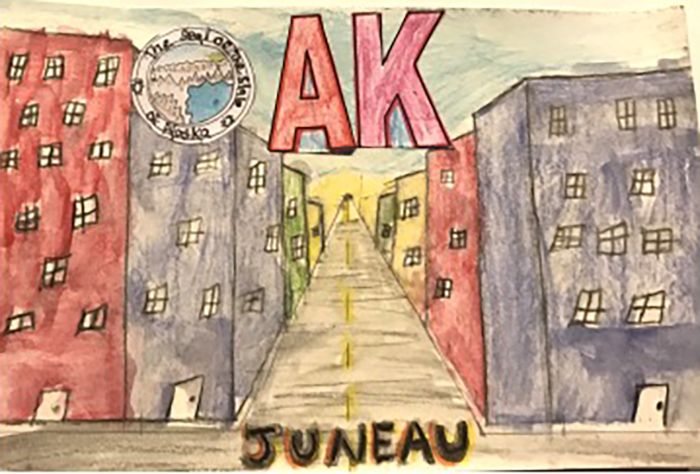 The Seal of the State
of Alaska
AK
JUNEAU